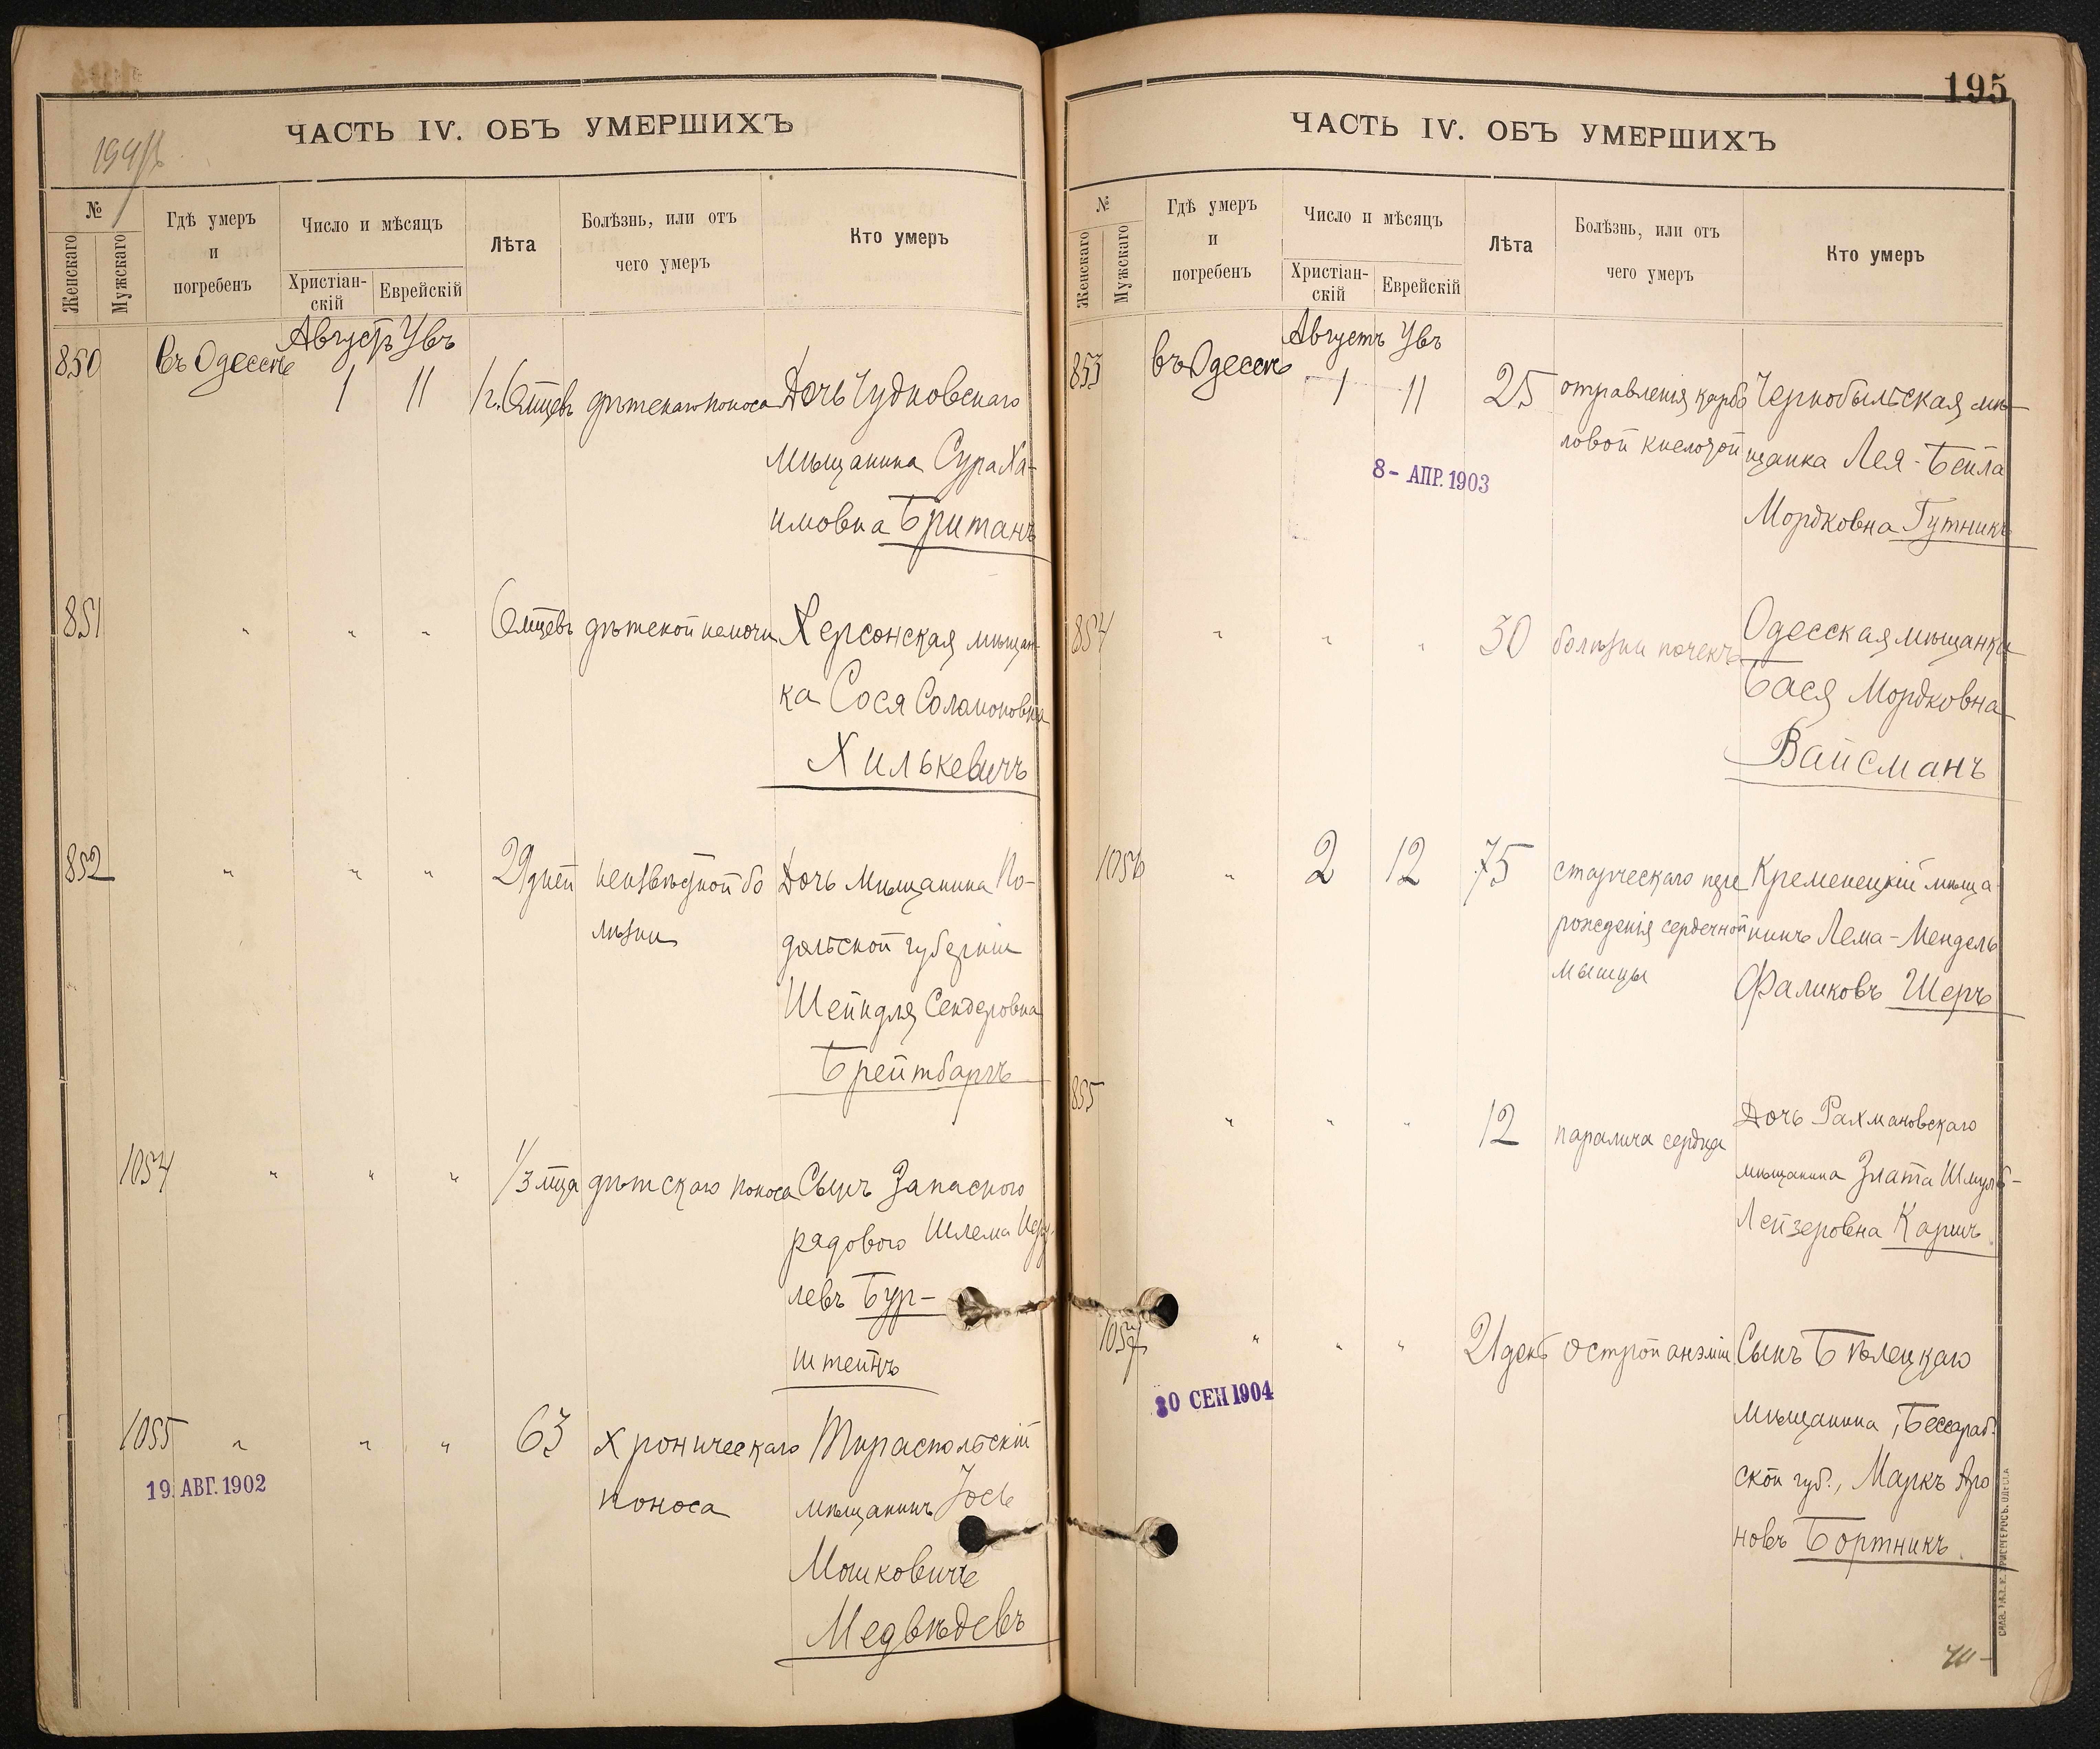 ЧАСТЬ IV. ОБЪ УМЕРШИХЪ
№
Женскаго
Мужскаго
Гдѣ умеръ
и
погребенъ
Число и мѣсяцъ
Христіан-
скій
Еврейскій
Лѣта
Болѣзнь, или отъ
чего умеръ
Кто умеръ
850
въ Одессѣ
Августъ
Увъ
1
11
1 г. 6 мцевъ
дѣтскаго поноса
Дочь Чудновскаго
мѣщанина Сура Ха-
имовна Британъ
851
" " "
6 мцевъ
дѣтской немочи
Херсонская мѣщан-
ка Сося Соломоновна
Хилькевичъ
852
" " "
29 дней
неизвѣстной бо
лѣзни
Дочь мѣщанина По-
дольской губерніи
Шейндля Сендеровна
Брейтбартъ
1054
" " "
1/3 мца
дѣтскаго поноса
Сынъ Запасного
рядового Шлема
левъ Бур-
штейнъ
1055
" " "
63
хроническаго
поноса
Тираспольскій
мѣщанинъ Іось
Мошковичъ
Медвѣдевъ
19. АВГ. 1902
195
ЧАСТЬ IV. ОБЪ УМЕРШИХЪ
№
Женскаго
Мужскаго
Гдѣ умеръ
и
погребенъ
Число и мѣсяцъ
Христіан-
скій
Еврейскій
Лѣта
Болѣзнь, или отъ
чего умеръ
Кто умеръ
853
въ Одессѣ
Августъ
Увъ
1
11
25
отравленія карбо
ловой кислотой
Чернобыльская мѣ-
щанка Лея-Бейла
Мордковна Гутникъ
8 - АПР. 1903
854
" " "
50
болѣзни почекъ
Одесская мѣщанка
Бася Мордковна
Вайсманъ
1056
"
2
12
75
старческаго пере
рожденія сердечной
мышцы
Кременецкій мѣща-
нинъ Лема-Мендель
Фаликовъ Шеръ
855
" " "
12
паралича сердца
Дочь Рахмановскаго
мѣщанина Злата Шмуль-
Лейзеровна Каричъ
1057
" " "
21 день
острой анэміи
Сынъ Бѣлецкаго
мѣщанина, Бессараб-
ской губ., Маркъ Аро
новъ Бортникъ
30 СЕН 1904